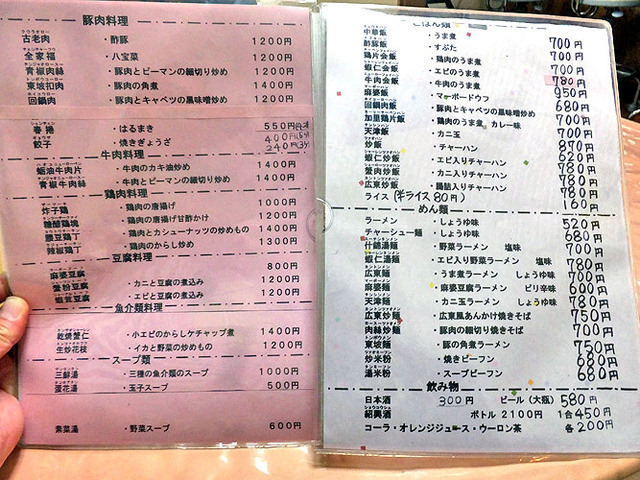 豚肉料理
古老肉 ・酢豚 1200円
全家福 ・八宝菜 1200円
青椒肉絲 ・豚肉とピーマンの細切り炒め 1200円
東坡扣肉 ・豚肉の角煮 1400円
回鍋肉 ・豚肉とキャベツの黒味噌炒め 1200円
春捲 ・はるまき 550円
餃子 ・焼きぎょうざ 400円
240円
牛肉料理
蛎油牛肉片 ・牛肉のカキ油炒め 1400円
青椒牛肉絲 ・牛肉とピーマンの細切り炒め 1400円
鶏肉料理
炸子鶏 ・鶏肉の唐揚げ 1000円
糖醋鶏塊 ・鶏肉の唐揚げ甘酢かけ 1200円
腰豆鶏丁 ・鶏肉とカシューナッツの炒めもの 1400円
辣椒鶏丁 ・鶏肉のからし炒め 1300円
豆腐料理
麻婆豆腐 800円
蟹粉豆腐 ・カニと豆腐の煮込み 1200円
蝦蓉豆腐 ・エビと豆腐の煮込み 1200円
魚介類料理
乾焼蝦仁 ・小エビのからしケチャップ煮 1400円
生炒花枝 ・イカと野菜の炒めもの 1200円
スープ類
三鮮湯 ・三種の魚介類のスープ 1000円
蛋花湯 ・玉子スープ 500円
素菜湯 ・野菜スープ 600円
ごはん類
中華飯 ・うま煮 700円
酢豚飯 ・すぶた 700円
鶏片会飯 ・鶏肉のうま煮 700円
蝦仁会飯 ・エビのうま煮 780円
牛肉会飯 ・牛肉のうま煮 950円
麻婆飯 ・マーボードウフ 680円
回鍋肉飯 ・豚肉とキャベツの黒味噌炒め 700円
加里鶏片飯 ・鶏肉のうま煮 カレー味 700円
天津飯 ・カニ玉 870円
炒飯 ・チャーハン 620円
蝦仁炒飯 ・エビ入りチャーハン 780円
蟹肉炒飯 ・カニ入りチャーハン 780円
広東炒飯 ・腸詰入りチャーハン 780円
ライス (半ライス80円) 160円
めん類
ラーメン ・しょうゆ味 520円
チャーシュー麺 ・しょうゆ味 680円
什錦湯麺 ・野菜ラーメン 塩味 700円
蝦仁湯麺 ・エビ入り野菜ラーメン 塩味 780円
広東麺 ・うま煮ラーメン しょうゆ味 700円
麻婆麺 ・麻婆豆腐ラーメン ピリ辛味 600円
天津麺 ・カニ玉ラーメン しょうゆ味 780円
広東炒麺 ・広東風あんかけ焼きそば 750円
肉絲炒麺 ・豚肉の細切り焼きそば 700円
東坡麺 ・豚の角煮ラーメン 750円
炒米粉 ・焼きビーフン 680円
湯米粉 ・スープビーフン 680円
飲み物
日本酒 300円 ビール(大瓶) 580円
紹興酒 ボトル 2100円 1合450円
コーラ・オレンジジュース・ウーロン茶 各200円